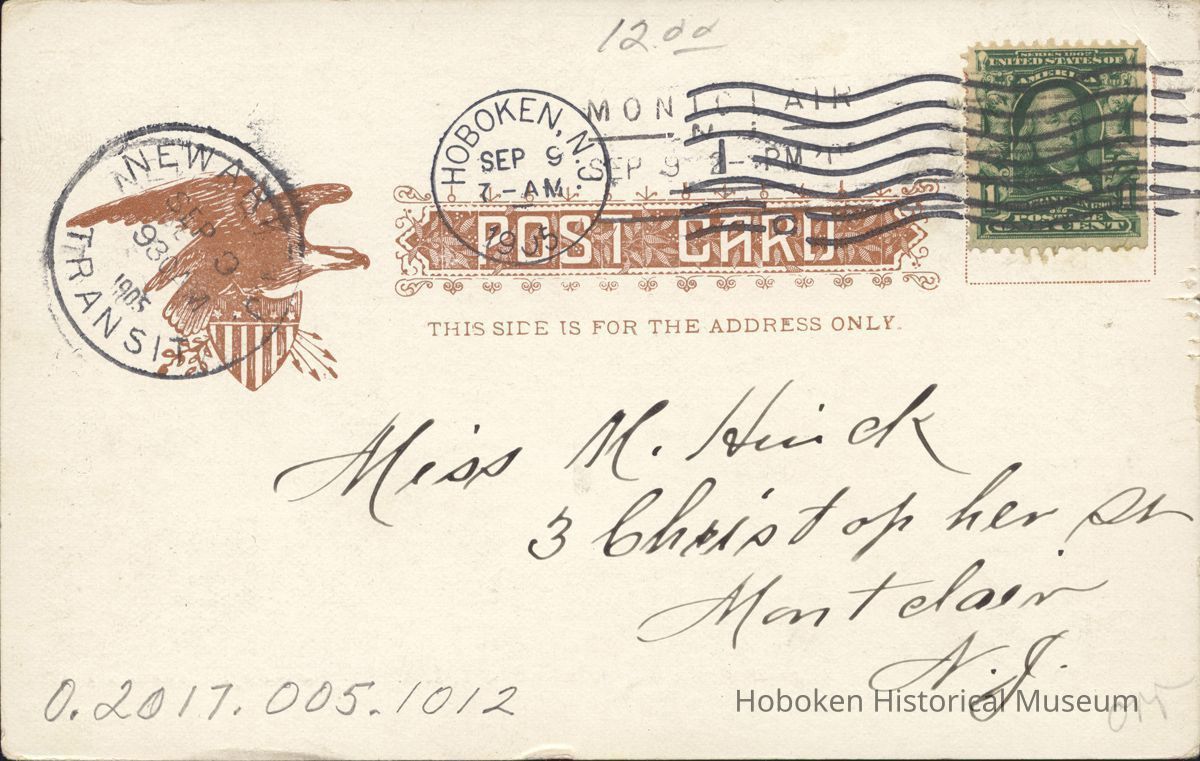 12.00
SERIES 1902
UNITED STATES OF
AMERICA
1 1
POSTAGE
ONE CENT
MONTCLAIR
N.J.
SEP 9 2- PM
HOBOKEN, N.J.
SEP 9
7-AM.
1905
NEWARK
SEP 9
930 AM
1905
TRANSIT
POST CARD
THIS SIDE IS FOR THE ADDRESS ONLY.
Miss M. Hinck
3 Christopher St
Montclair
N.J.
0.2017.005.1012
Hoboken Historical Museum